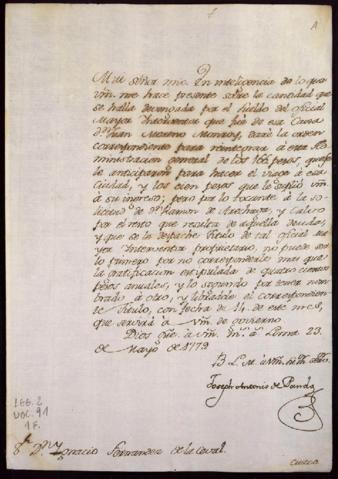 A
Mui Señor mio: En inteligencia de lo que
vm. me hace presente sobre la cantidad que
se halla devengada por el sueldo del oficial
Mayor Interventor que fue de esa Caxa
Dn. Juan Moreno Monroy, daré la orden
correspondiente para reintegrar á esta Ad-
ministracion general de los 166 pesos, que se
le anticiparon para hacer el viage á esa
Ciudad, y los cien pesos que le suplió vm.
á su ingreso; pero por lo tocante á la so-
licitud de Dn. Ramon de
por el resto que resulta de aquella deuda,
y que se le despache titulo de tal oficial Ma-
yor Interventor propietario, no puede ser
lo primero por no corresponderle mas que
la gratificacion estipulada de quatro cientos
pesos anuales, y lo segundo por tener nom-
brado á otro, y libradole el correspondien-
te Titulo, con fecha de 14 de este mes,
que servirá á vm. de govierno.
Dios gue. á vm. ms. as. Lima 23
de Mayo de 1779
B. L. M. á vm.
Joseph Antonio de Pando
LEG. 2
DOC. 91
1 F.
Sr. Dn. Ignacio Fernandez de la Ceval.
Cuzco